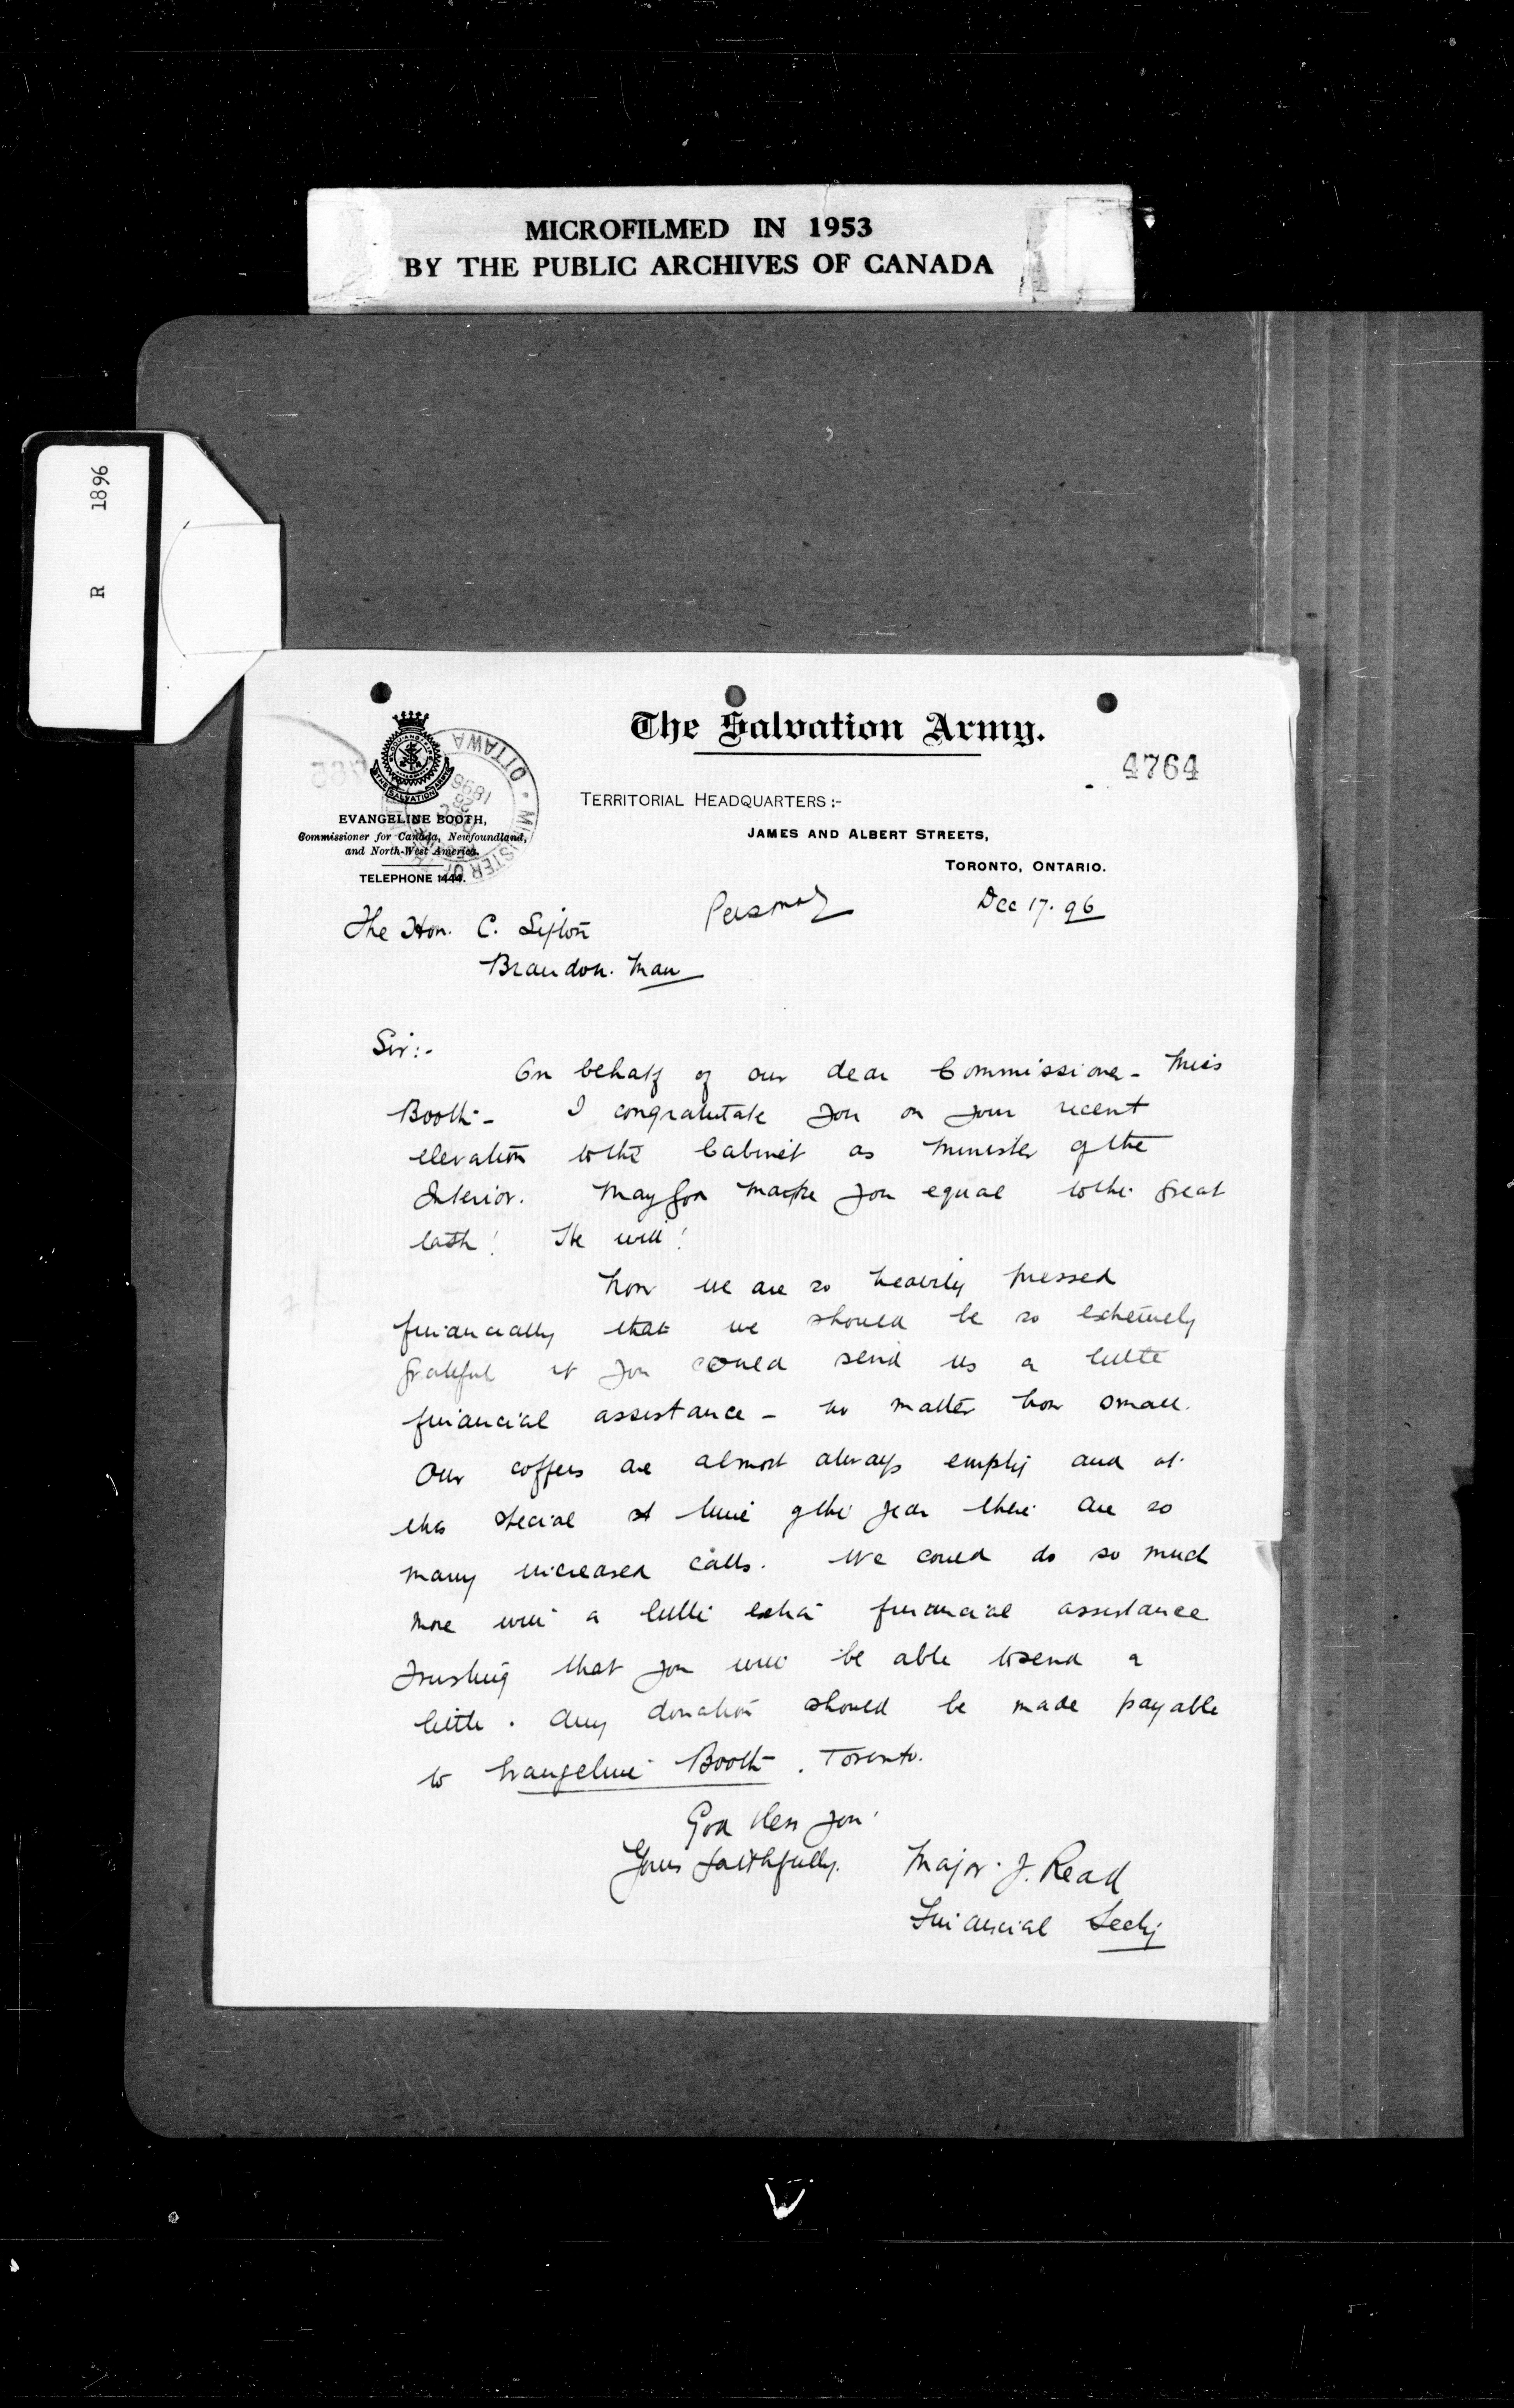 MICROFILMED IN 1953
BY THE PUBLIC ARCHIVES OF CANADA
R 1896
The Salvation Army.
4764
THE SALVATION ARMY
OTTAWA
1896
TERRITORIAL HEADQUARTERS:-
JAMES AND ALBERT STREETS,
TORONTO, ONTARIO.
EVANGELINE BOOTH,
Commissioner for Canada, Newfoundland,
and North-West America.
TELEPHONE 1444.
Personal
Dec 17. 96
The Hon. C. Sifton
Brandon. Man
Sir:-
On behalf of our dear Commissioner - Miss
Booth - I congratulate you on your recent
elevation to the Cabinet as Minister of the
Interior. May God make you equal to the great
task! He will!
Now we are so heavily pressed
financially that we should be so extremely
grateful if you could send us a little
financial assistance - no matter how small.
Our coffers are almost always empty and at
this special time of the year there are so
many increased calls. We could do so much
more with a little extra financial assistance
Trusting that you will be able to send a
little. Any donation should be made payable
to Evangeline Booth. Toronto.
God bless you!
Yours faithfully. Major. J. Read
Financial Secty